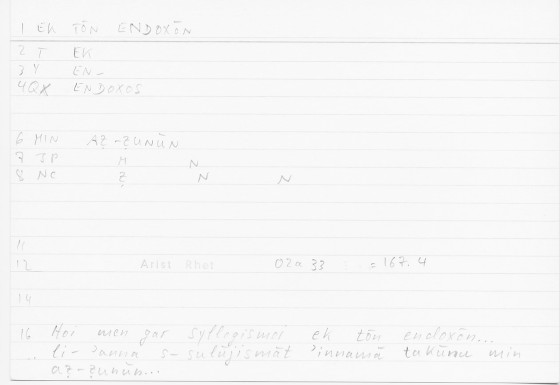 1 EK TŌN ENDOXŌN
2 T EK
3 Y EN-
4 QX ENDOXOS
6 MIN AẒ-ẒUNŪN
7 IP M N
8 NC Ẓ N N
11
12 Arist Rhet 02a 33 = 167.4
14
16 Hoi men gar syllogismoi ek tōn endoxōn...
.. li-'anna s-sulūjismāt 'innamā takūnu min
aẓ-ẓunūn...